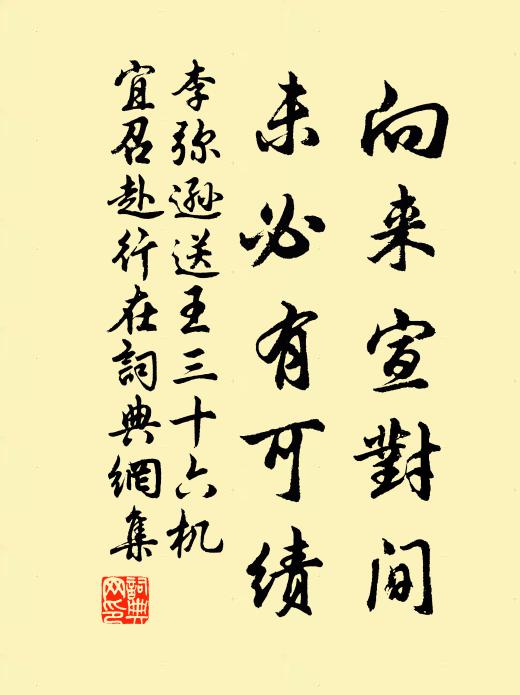 向来宣對间
未必有可绩
李弥遜送王三十六机
宜召赴行在詞典網集
詞典网印